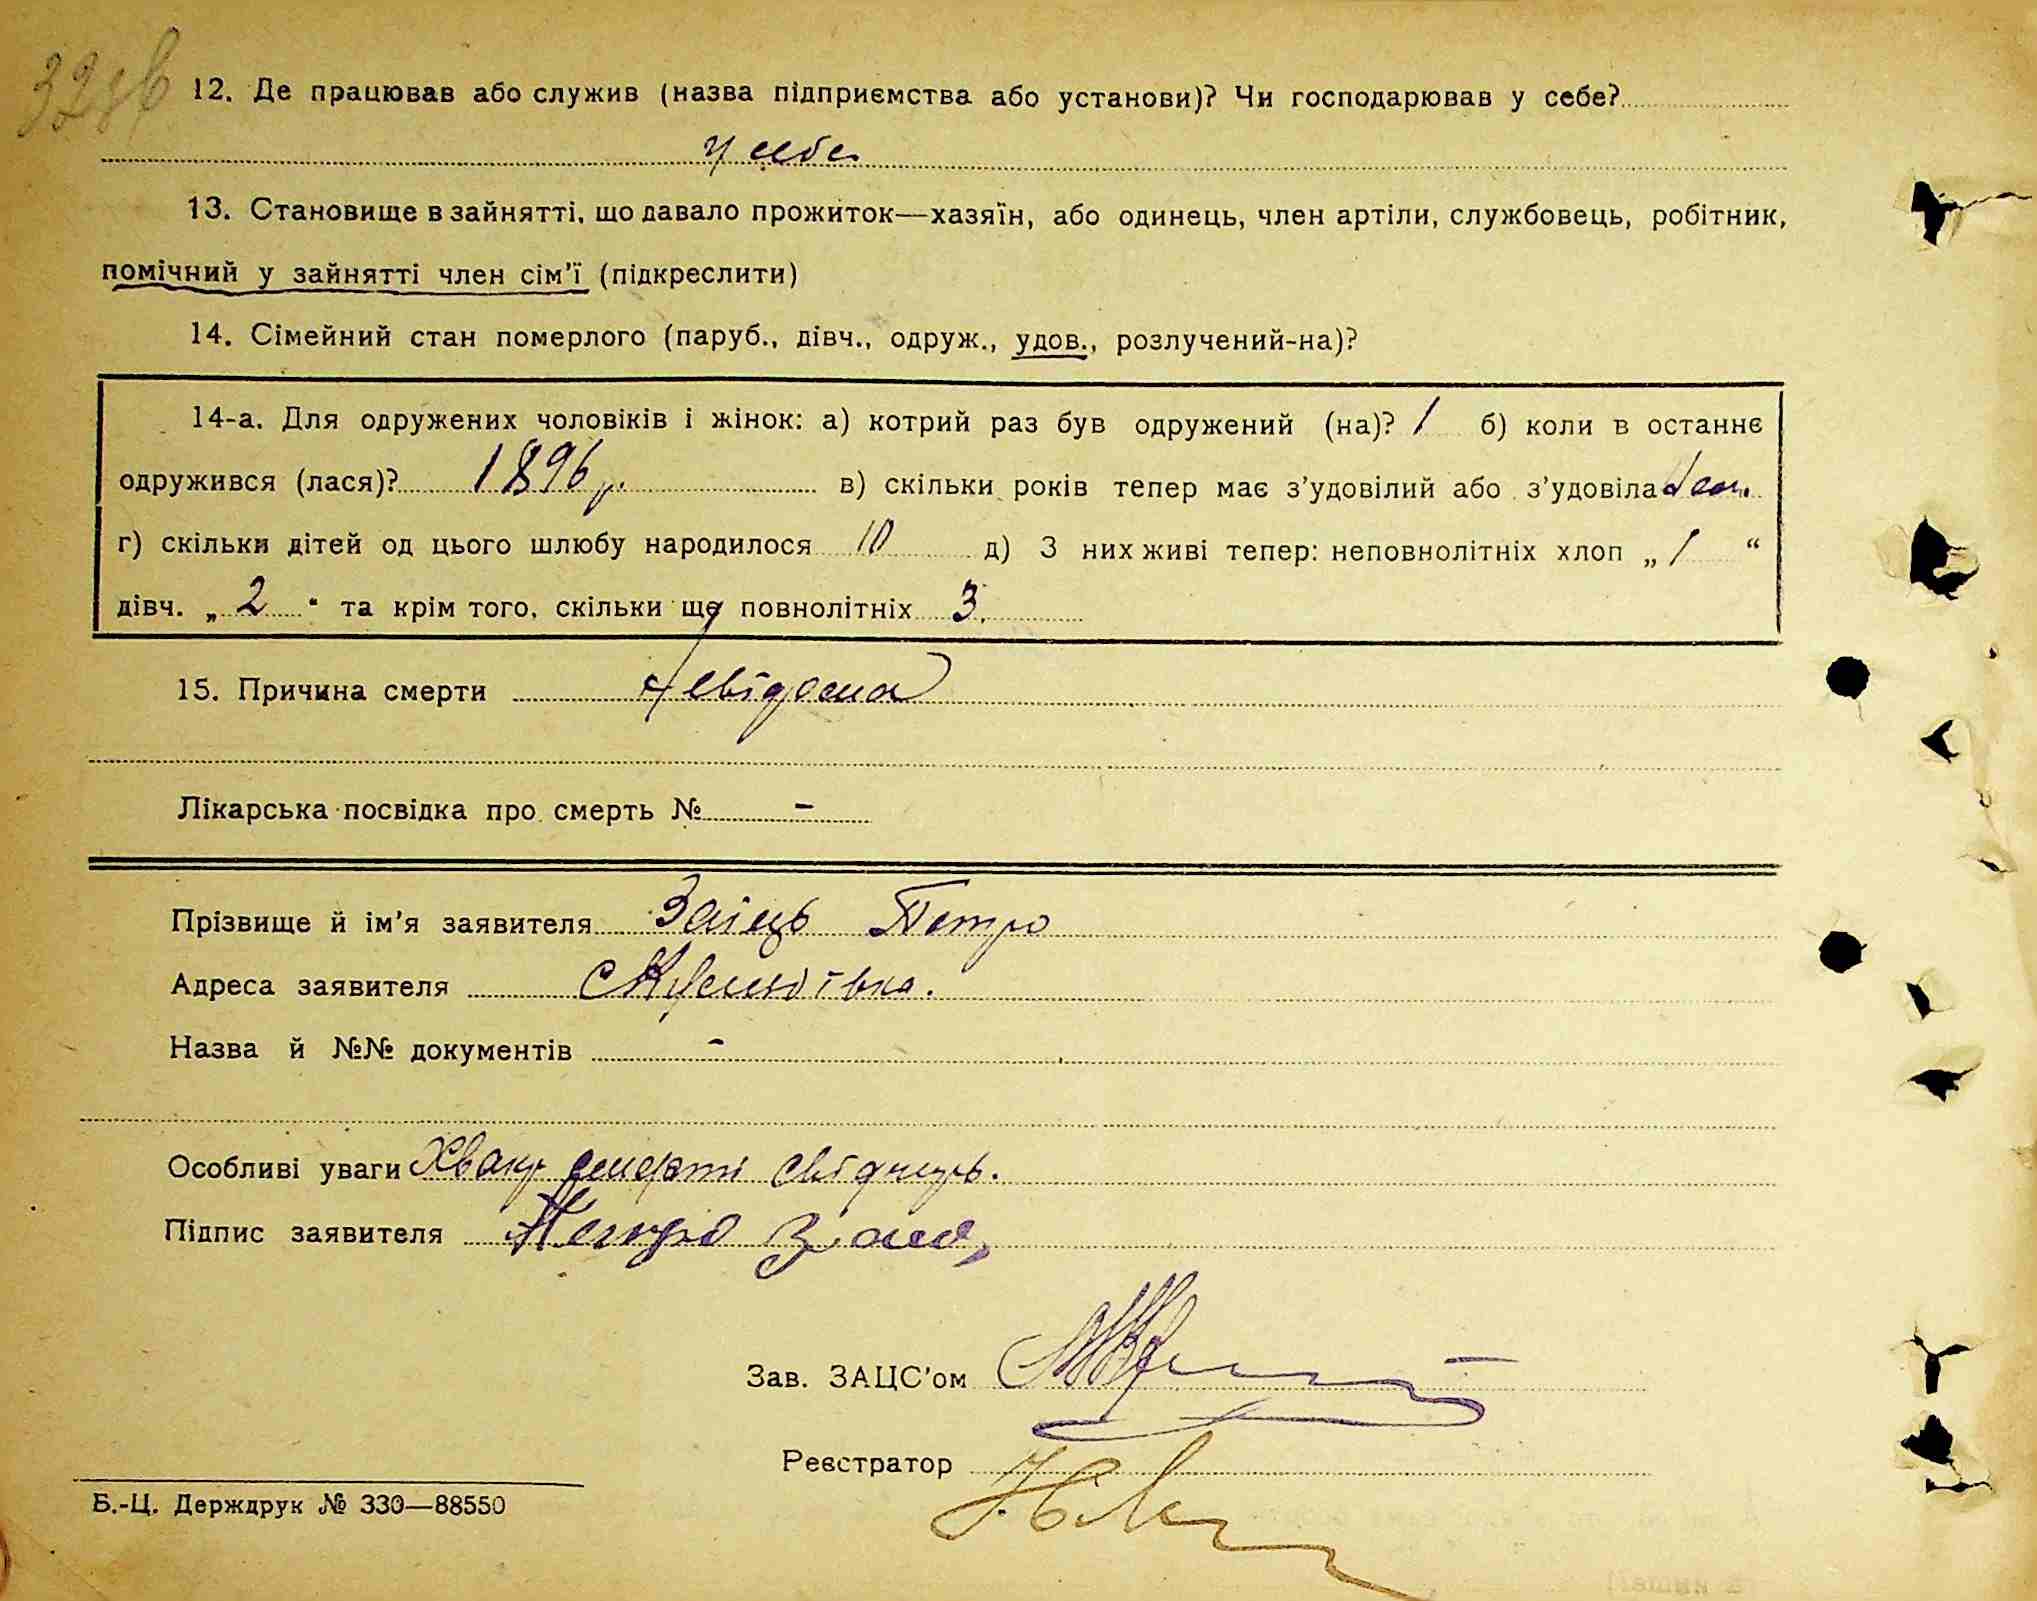 32зв
12. Де працював або служив (назва підприємства або установи)? Чи господарював у себе?
у себе
13. Становище в зайнятті, що давало прожиток—хазяїн, або одинець, член артіли, службовець, робітник,
помічний у зайнятті член сім'ї (підкреслити)
14. Сімейний стан померлого (паруб., дівч., одруж., удов., розлучений-на)?
14-а. Для одружених чоловіків і жінок: а) котрий раз був одружений (на)? 1 б) коли в останнє
одружився (лася)? 1896 р. в) скільки років тепер має з'удовілий або з'удовіла
г) скільки дітей од цього шлюбу народилося 10 д) З них живі тепер: неповнолітніх хлоп „ 1 “
дівч. „ 2 “ та крім того, скільки ще повнолітніх 3.
15. Причина смерти Невідома
Лікарська посвідка про смерть № -
Прізвище й ім'я заявителя Заіць Петро
Адреса заявителя
Назва й №№ документів -
Особливі уваги Хвакт смерті свідчуть.
Підпис заявителя Петро
Зав. ЗАЦС'ом
Реєстратор
Б.-Ц. Держдрук № 330—88550